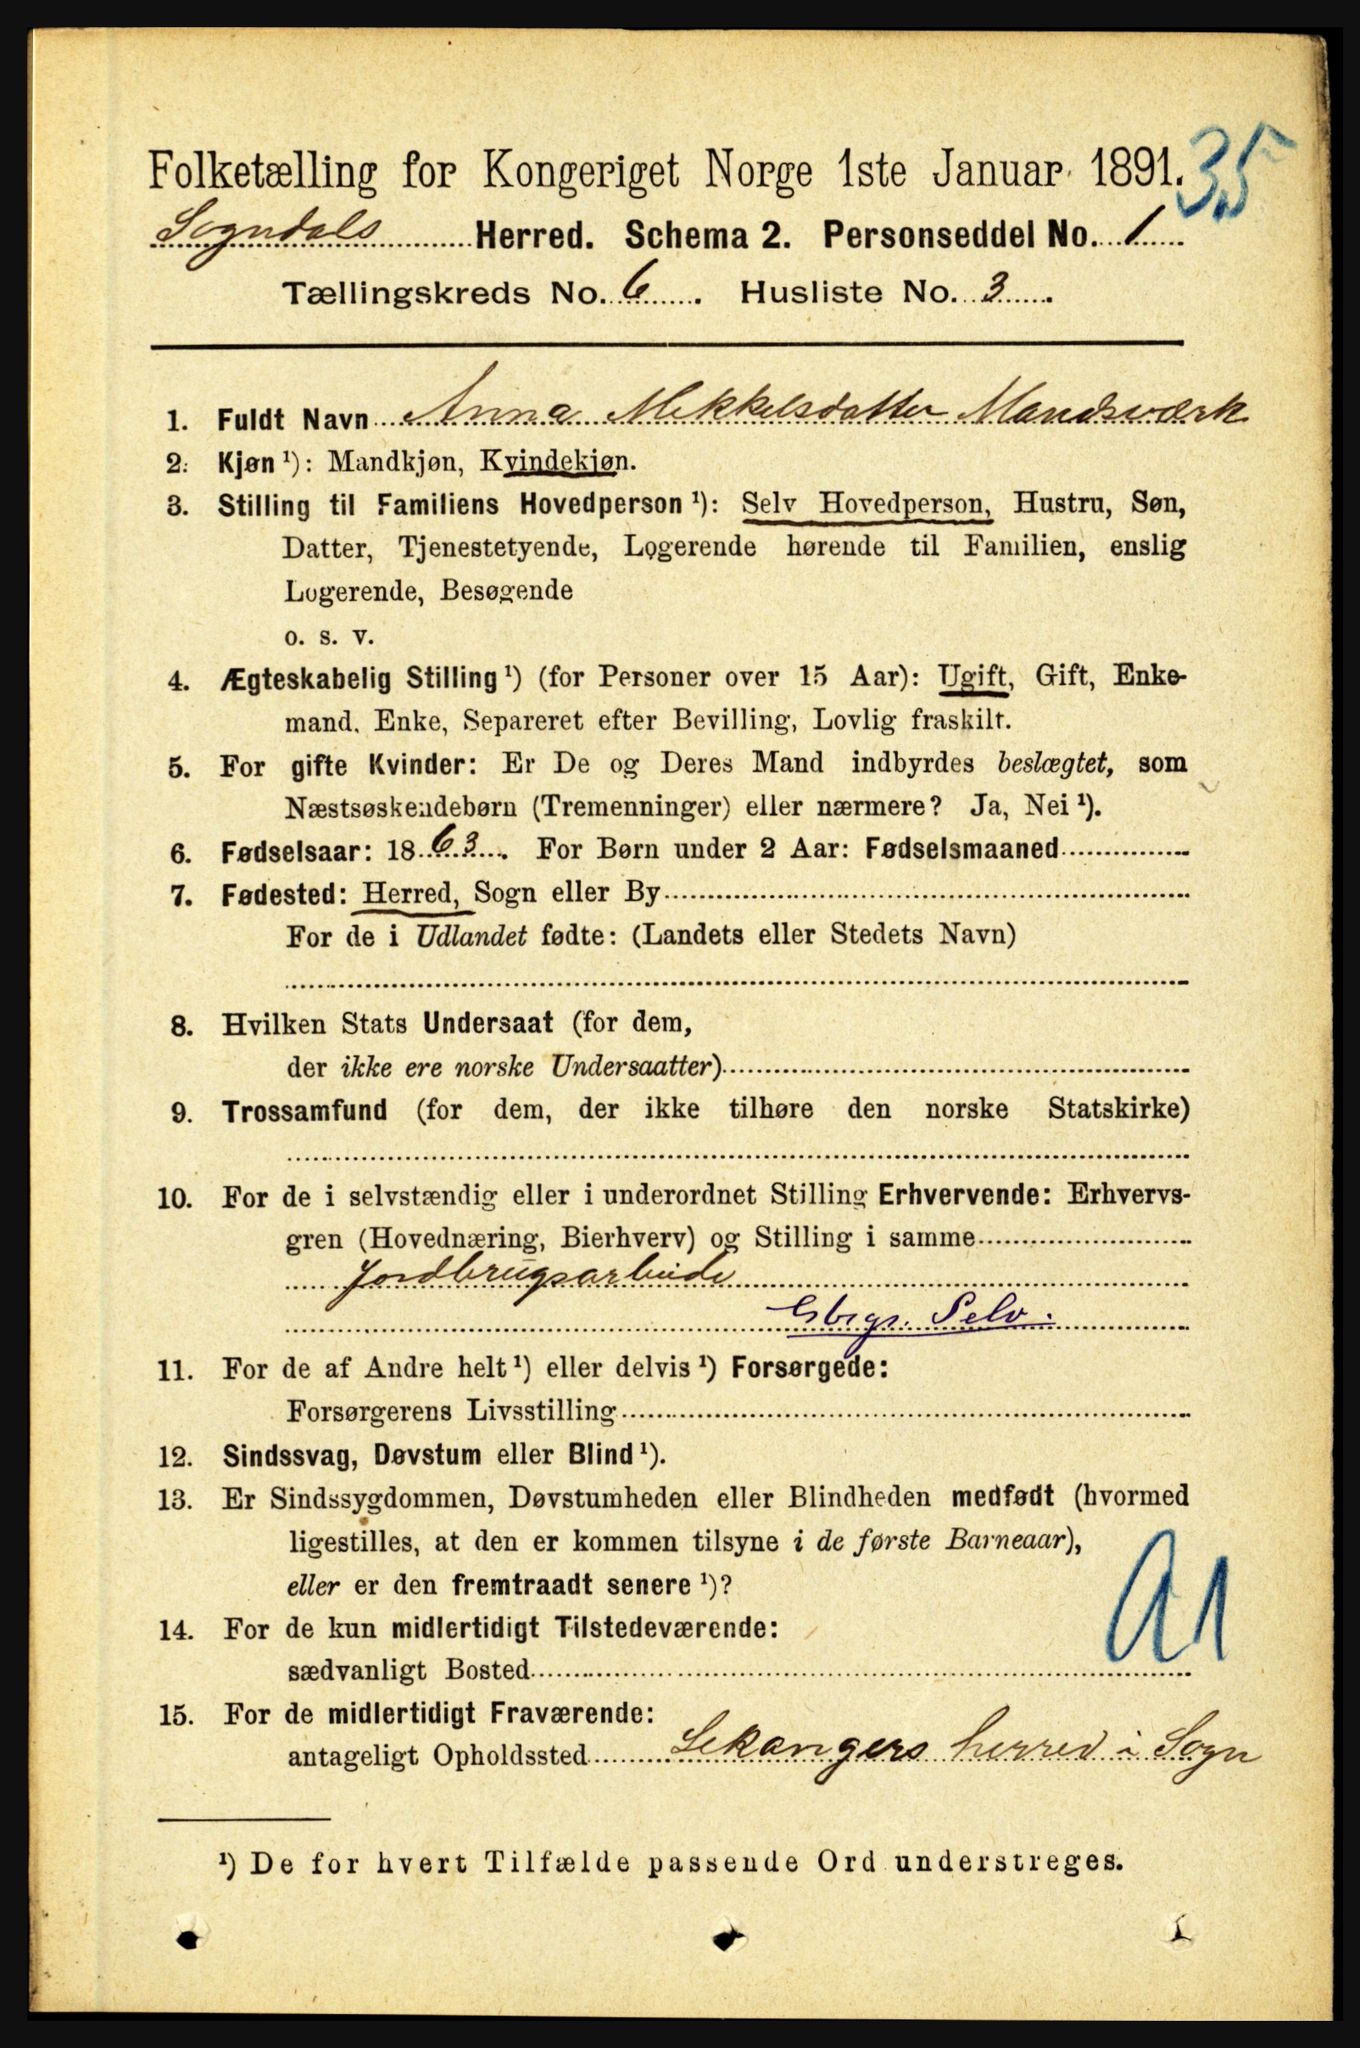 Folketælling for Kongeriget Norge 1ste Januar 1891. 35
Sogndals Herred. Schema 2. Personseddel No. 1
Tællingskreds No. 6. Husliste No. 3.
1. Fuldt Navn Anna Mekkelsdatter Mandsværk
2. Kjøn ¹): Mandkjøn, Kvindekjøn.
3. Stilling til Familiens Hovedperson ¹): Selv Hovedperson, Hustru, Søn,
Datter, Tjenestetyende, Logerende hørende til Familien, enslig
Logerende, Besøgende
o. s. v.
4. Ægteskabelig Stilling ¹) (for Personer over 15 Aar): Ugift, Gift, Enke-
mand, Enke, Separeret efter Bevilling, Lovlig fraskilt.
5. For gifte Kvinder: Er De og Deres Mand indbyrdes beslægtet, som
Næstsøskendebørn (Tremenninger) eller nærmere? Ja, Nei ¹).
6. Fødselsaar: 1863. For Børn under 2 Aar: Fødselsmaaned
7. Fødested: Herred, Sogn eller By
For de i Udlandet fødte: (Landets eller Stedets Navn)
8. Hvilken Stats Undersaat (for dem,
der ikke ere norske Undersaatter)
9. Trossamfund (for dem, der ikke tilhøre den norske Statskirke)
10. For de i selvstændig eller i underordnet Stilling Erhvervende: Erhvervs-
gren (Hovednæring, Bierhverv) og Stilling i samme
Jordbrugsarbeide
Gbrgr. Selv.
11. For de af Andre helt ¹) eller delvis ¹) Forsørgede:
Forsørgerens Livsstilling
12. Sindssvag, Døvstum eller Blind ¹).
13. Er Sindssygdommen, Døvstumheden eller Blindheden medfødt (hvormed
ligestilles, at den er kommen tilsyne i de første Barneaar),
eller er den fremtraadt senere ¹)?
A1
14. For de kun midlertidigt Tilstedeværende:
sædvanligt Bosted
15. For de midlertidigt Fraværende:
antageligt Opholdssted Lekangers herred i Sogn
¹) De for hvert Tilfælde passende Ord understreges.